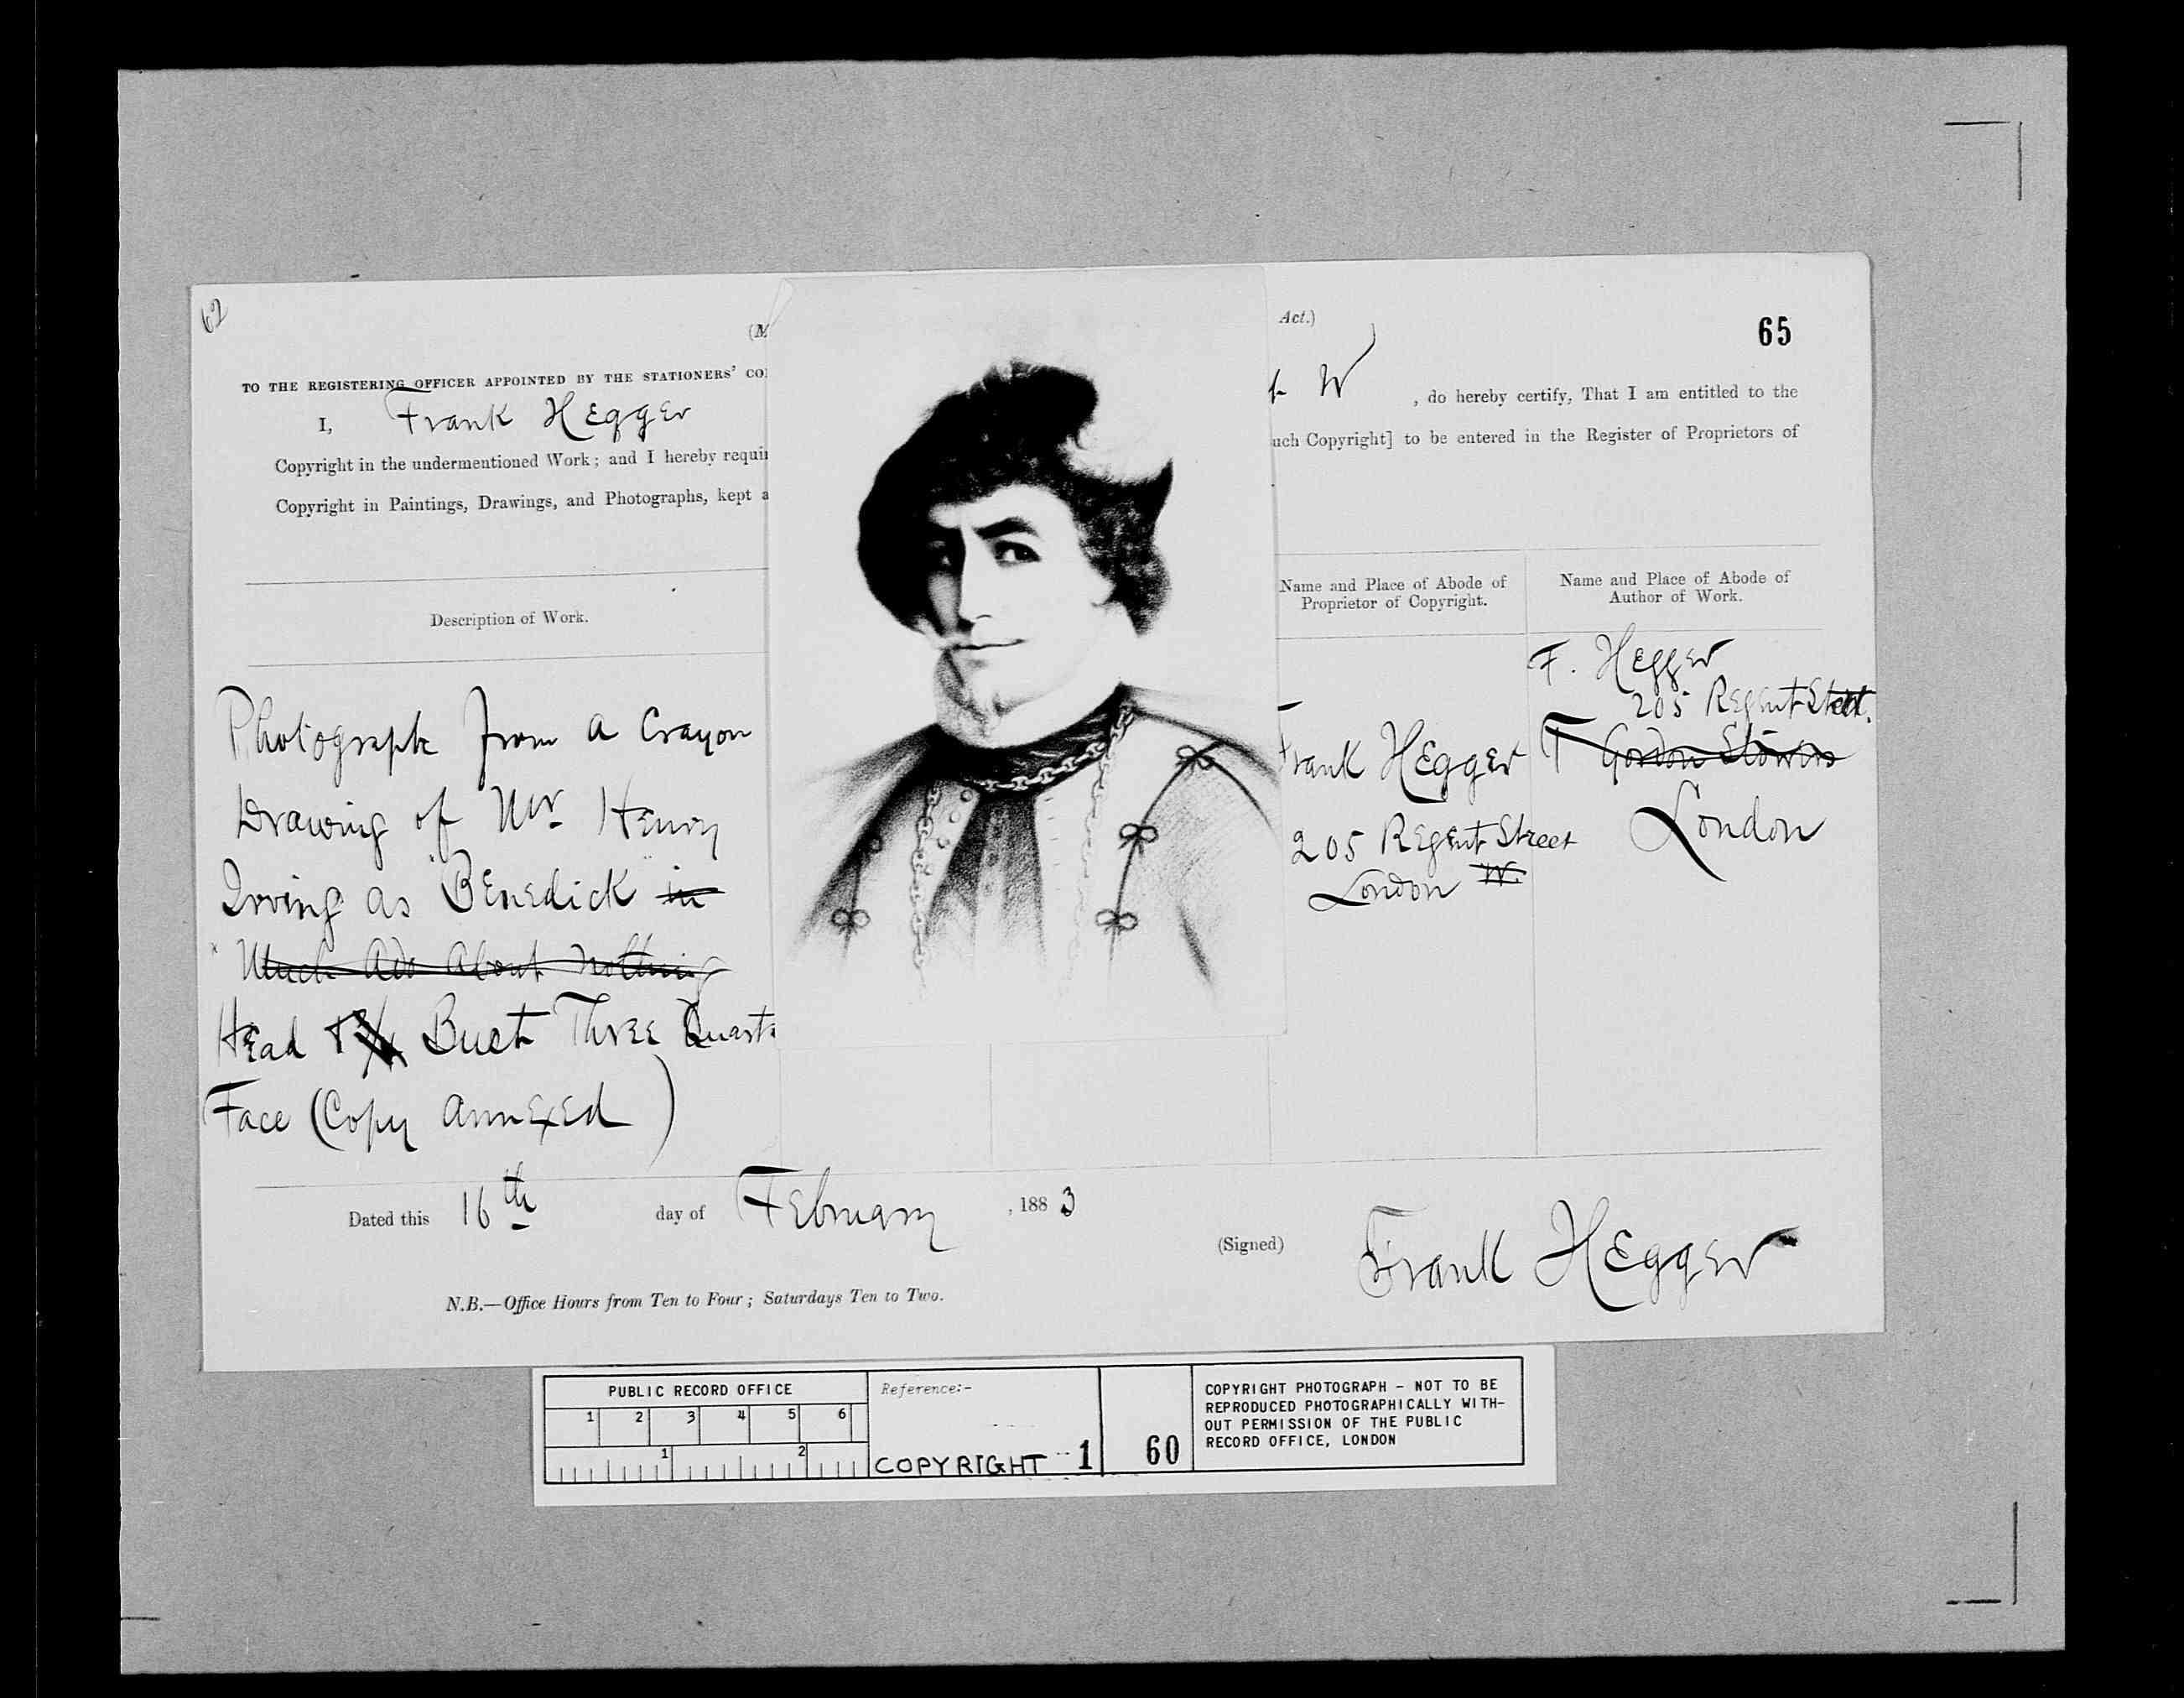 62
(M
Act.)
65
TO THE REGISTERING OFFICER APPOINTED BY THE STATIONERS' CO
I, Frank Hegger
W , do hereby certify, That I am entitled to the
Copyright in the undermentioned Work; and I hereby requi
uch Copyright] to be entered in the Register of Proprietors of
Copyright in Paintings, Drawings, and Photographs, kept a
Description of Work.
Name and Place of Abode of
Proprietor of Copyright.
Name and Place of Abode of
Author of Work.
Photograph from a Crayon
Drawing of Mr Henry
Irving as "Benedick" in
"Much Ado About Nothing
Head Bust Three Quart
Face (Copy annexed)
Frank Hegger
205 Regent Street
London W.
F. Hegger
205 Regent Street.
T Gordon
London
Dated this 16th day of February, 1883
(Signed) Frank Hegger
N.B.—Office Hours from Ten to Four; Saturdays Ten to Two.
PUBLIC RECORD OFFICE
1 2 3 4 5 6
1 2
Reference:-
COPYRIGHT 1
60
COPYRIGHT PHOTOGRAPH - NOT TO BE
REPRODUCED PHOTOGRAPHICALLY WITH-
OUT PERMISSION OF THE PUBLIC
RECORD OFFICE, LONDON